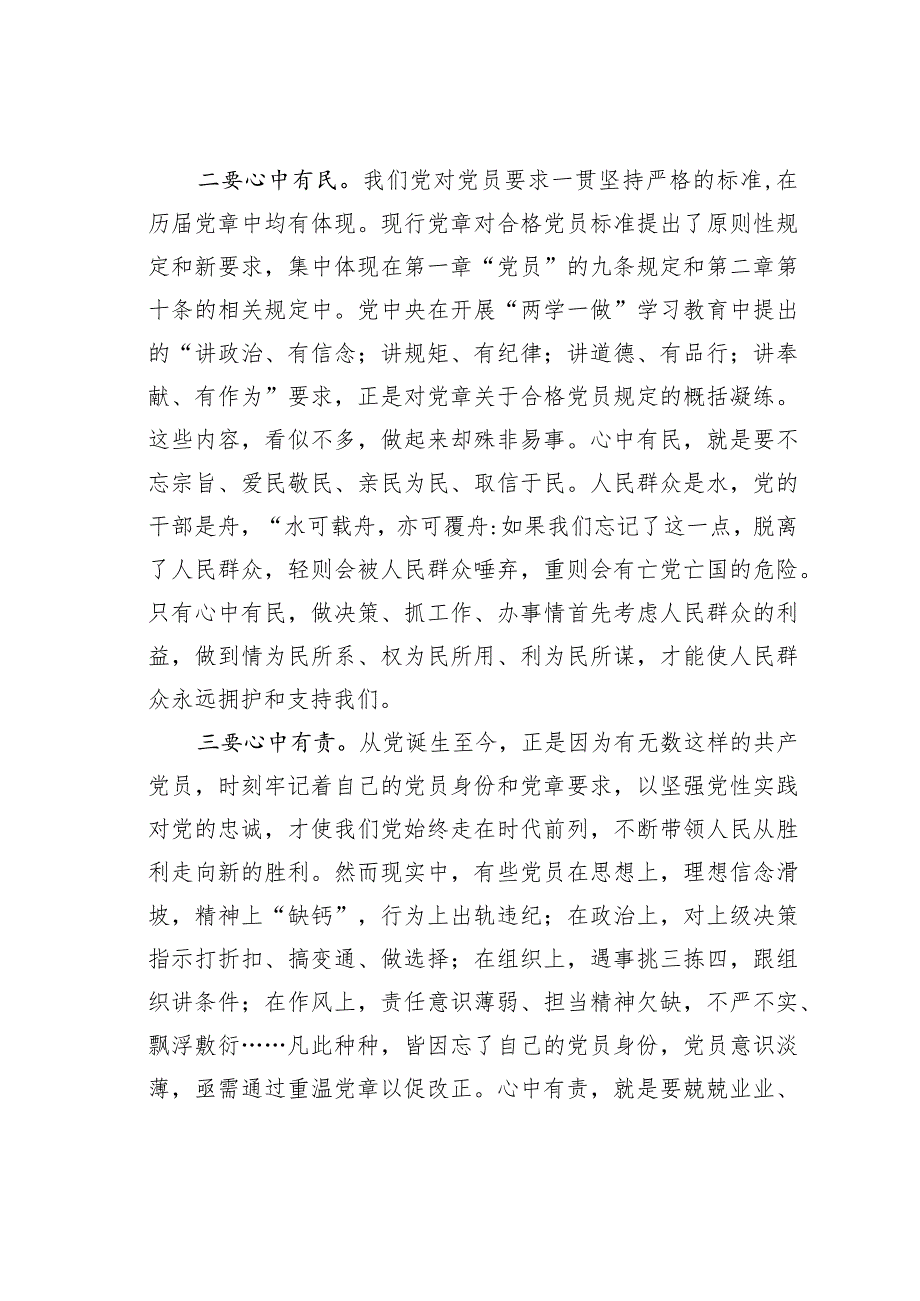 二要心中有民。我们党对党员要求一贯坚持严格的标准,在
历届党章中均有体现。现行党章对合格党员标准提出了原则性规
定和新要求，集中体现在第一章“党员”的九条规定和第二章第
十条的相关规定中。党中央在开展“两学一做”学习教育中提出
的“讲政治、有信念；讲规矩、有纪律；讲道德、有品行；讲奉
献、有作为”要求，正是对党章关于合格党员规定的概括凝练。
这些内容，看似不多，做起来却殊非易事。心中有民，就是要不
忘宗旨、爱民敬民、亲民为民、取信于民。人民群众是水，党的
干部是舟，“水可载舟，亦可覆舟:如果我们忘记了这一点，脱离
了人民群众，轻则会被人民群众唾弃，重则会有亡党亡国的危险。
只有心中有民，做决策、抓工作、办事情首先考虑人民群众的利
益，做到情为民所系、权为民所用、利为民所谋，才能使人民群
众永远拥护和支持我们。
三要心中有责。从党诞生至今，正是因为有无数这样的共产
党员，时刻牢记着自己的党员身份和党章要求，以坚强党性实践
对党的忠诚，才使我们党始终走在时代前列，不断带领人民从胜
利走向新的胜利。然而现实中，有些党员在思想上，理想信念滑
坡，精神上“缺钙”，行为上出轨违纪；在政治上，对上级决策
指示打折扣、搞变通、做选择；在组织上，遇事挑三拣四，跟组
织讲条件；在作风上，责任意识薄弱、担当精神欠缺，不严不实、
飘浮敷衍……凡此种种，皆因忘了自己的党员身份，党员意识淡
薄，亟需通过重温党章以促改正。心中有责，就是要兢兢业业、